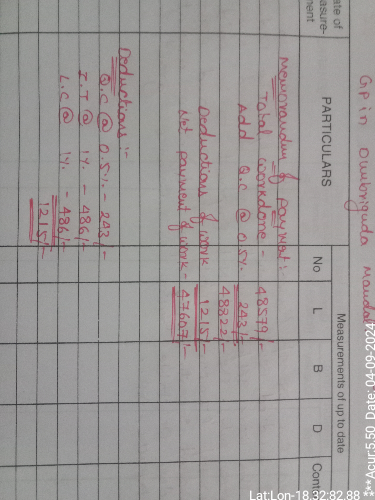 GP in Dumbriguda Mandal
ate of
asure-
ment
PARTICULARS
Measurements of up to date
No
L
B
D
Cont
Memorandum of payment:-
Total workdone - 48579/-
Add Q.C @ 0.5%. 243/-
48822/-
Deductions of work 1215/-
Net payment of work - 47607/-
Deductions :-
Q.C @ 0.5%. - 243/-
I.T @ 1%. - 486/-
L.C @ 1%. - 486/-
1215/-
Lat:Lon-18.32:82.88 ***Acur:5.50 Date: 04-09-2024